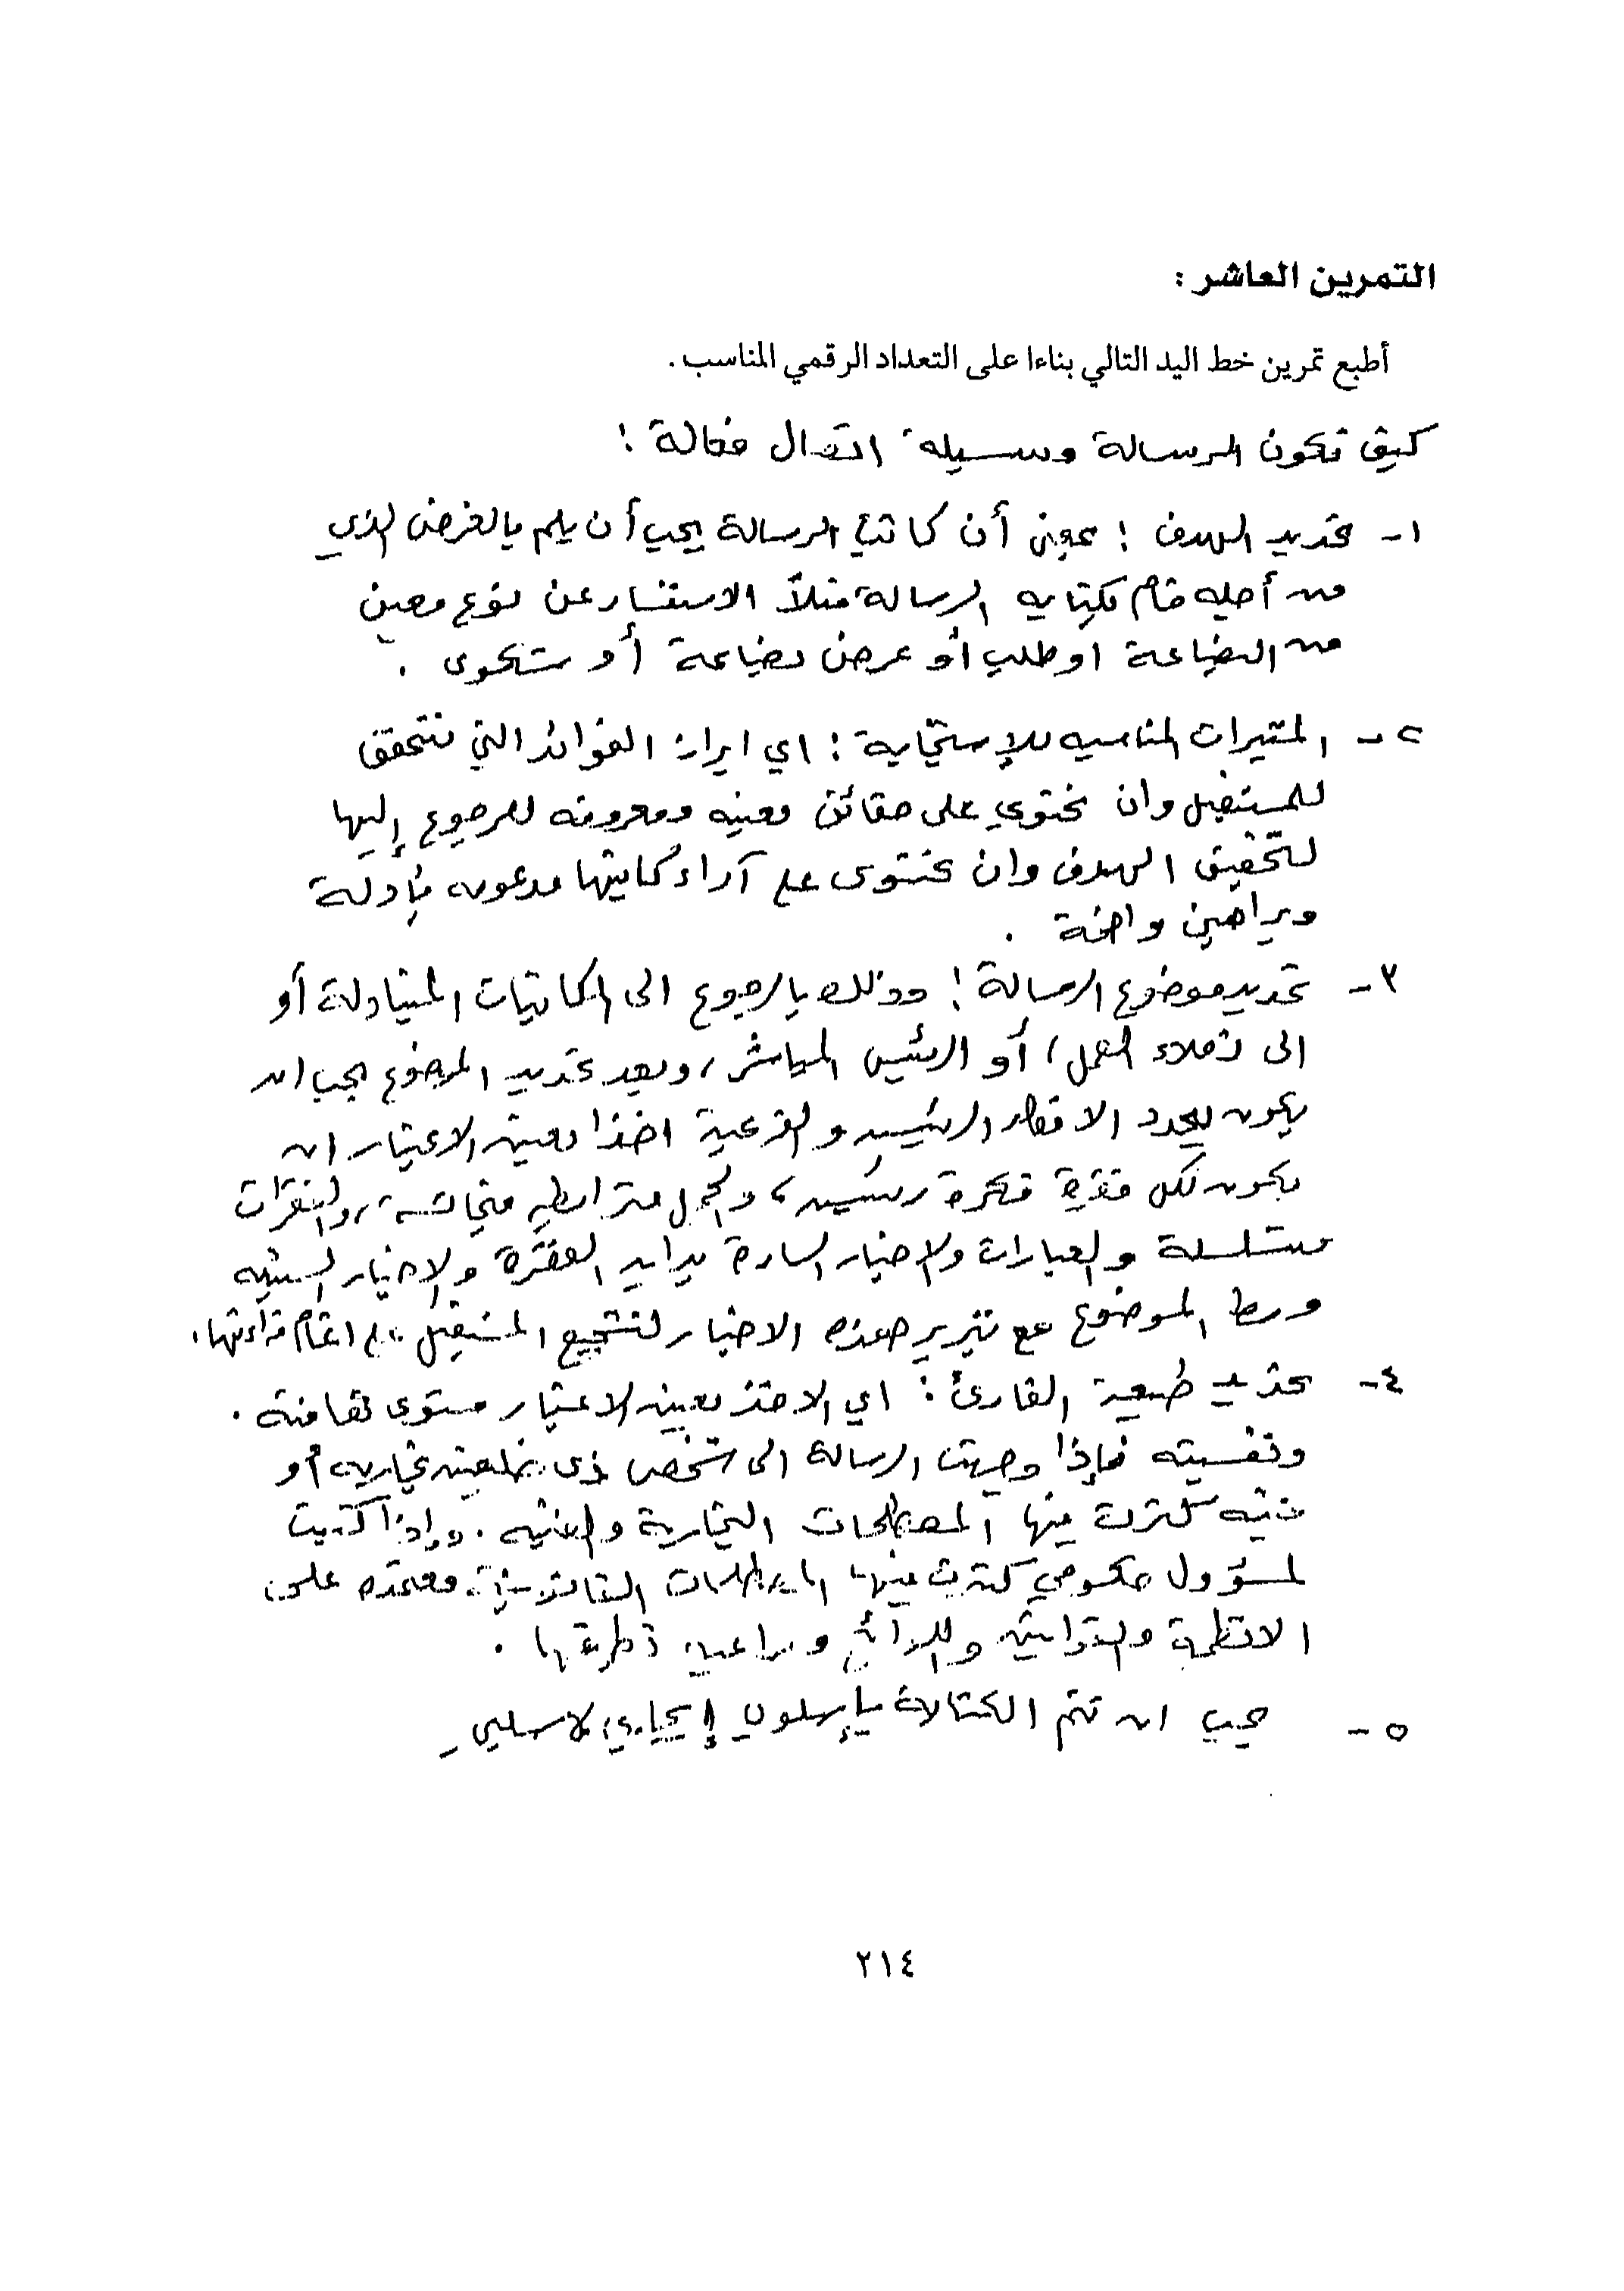 التمرين العاشر :
أطبع تمرين خط اليد التالي بناءا على التعداد الرقمي المناسب .
كيف تكون الرسالة وسيلة اتصال فعالة :
١- تحديد الهدف : بمعنى أن كاتب الرسالة يجب أن يلم بالغرض الذي
من أجله قام بكتابه الرسالة مثلاً الاستفسار عن نوع معين
من البضاعة او طلب أو عرض بضاعة أو شكوى .
٢- المثيرات المناسبه للإستجابة : اي ابراز الفوائد التي تتحقق
للمستقبل وان تحتوي على حقائق معينه ومعروفه للرجوع إليها
لتحقيق الهدف وان تحتوى على آراء كاتبها مدعومه بأدلة
وبراهين واضحة .
٣- تحديد موضوع الرسالة : وذلك بالرجوع الى المكاتبات المتبادلة أو
الى زملاء العمل، أو الرئيس المباشر، وبعد تحديد الموضوع يجب ان
يكون يحدد الافكار الرئيسيه والفرعية اخذا بعين الاعتبار ان
يكون لكل فقرة فكرة رئيسيه، والجمل مترابطه متجانسة، والفقرات
متسلسلة والعبارات والاخبار السارة بداية الفقرة والاخبار السيئه
وسط الموضوع مع تبرير هذه الاخبار لتشجيع المستقبل اتمام قراءتها .
٤- تحديد طبيعة القارئ : اي الاخذ بعين الاعتبار مستوى ثقافته .
ونفسيته فإذا وجهت الرسالة الى شخص ذى خلفيه تجاريه أو
فنيه كثرت فيها المصطلحات التجارية والفنيه . وإذا كتبت
لمسؤول حكومي كثرت فيها المصطلحات القانونية معتمده على
الانظمة والقوانين واللوائح
٥- يجب ان تتم الكتابة بإسلوب إيجابي لا سلبي
٢١٤